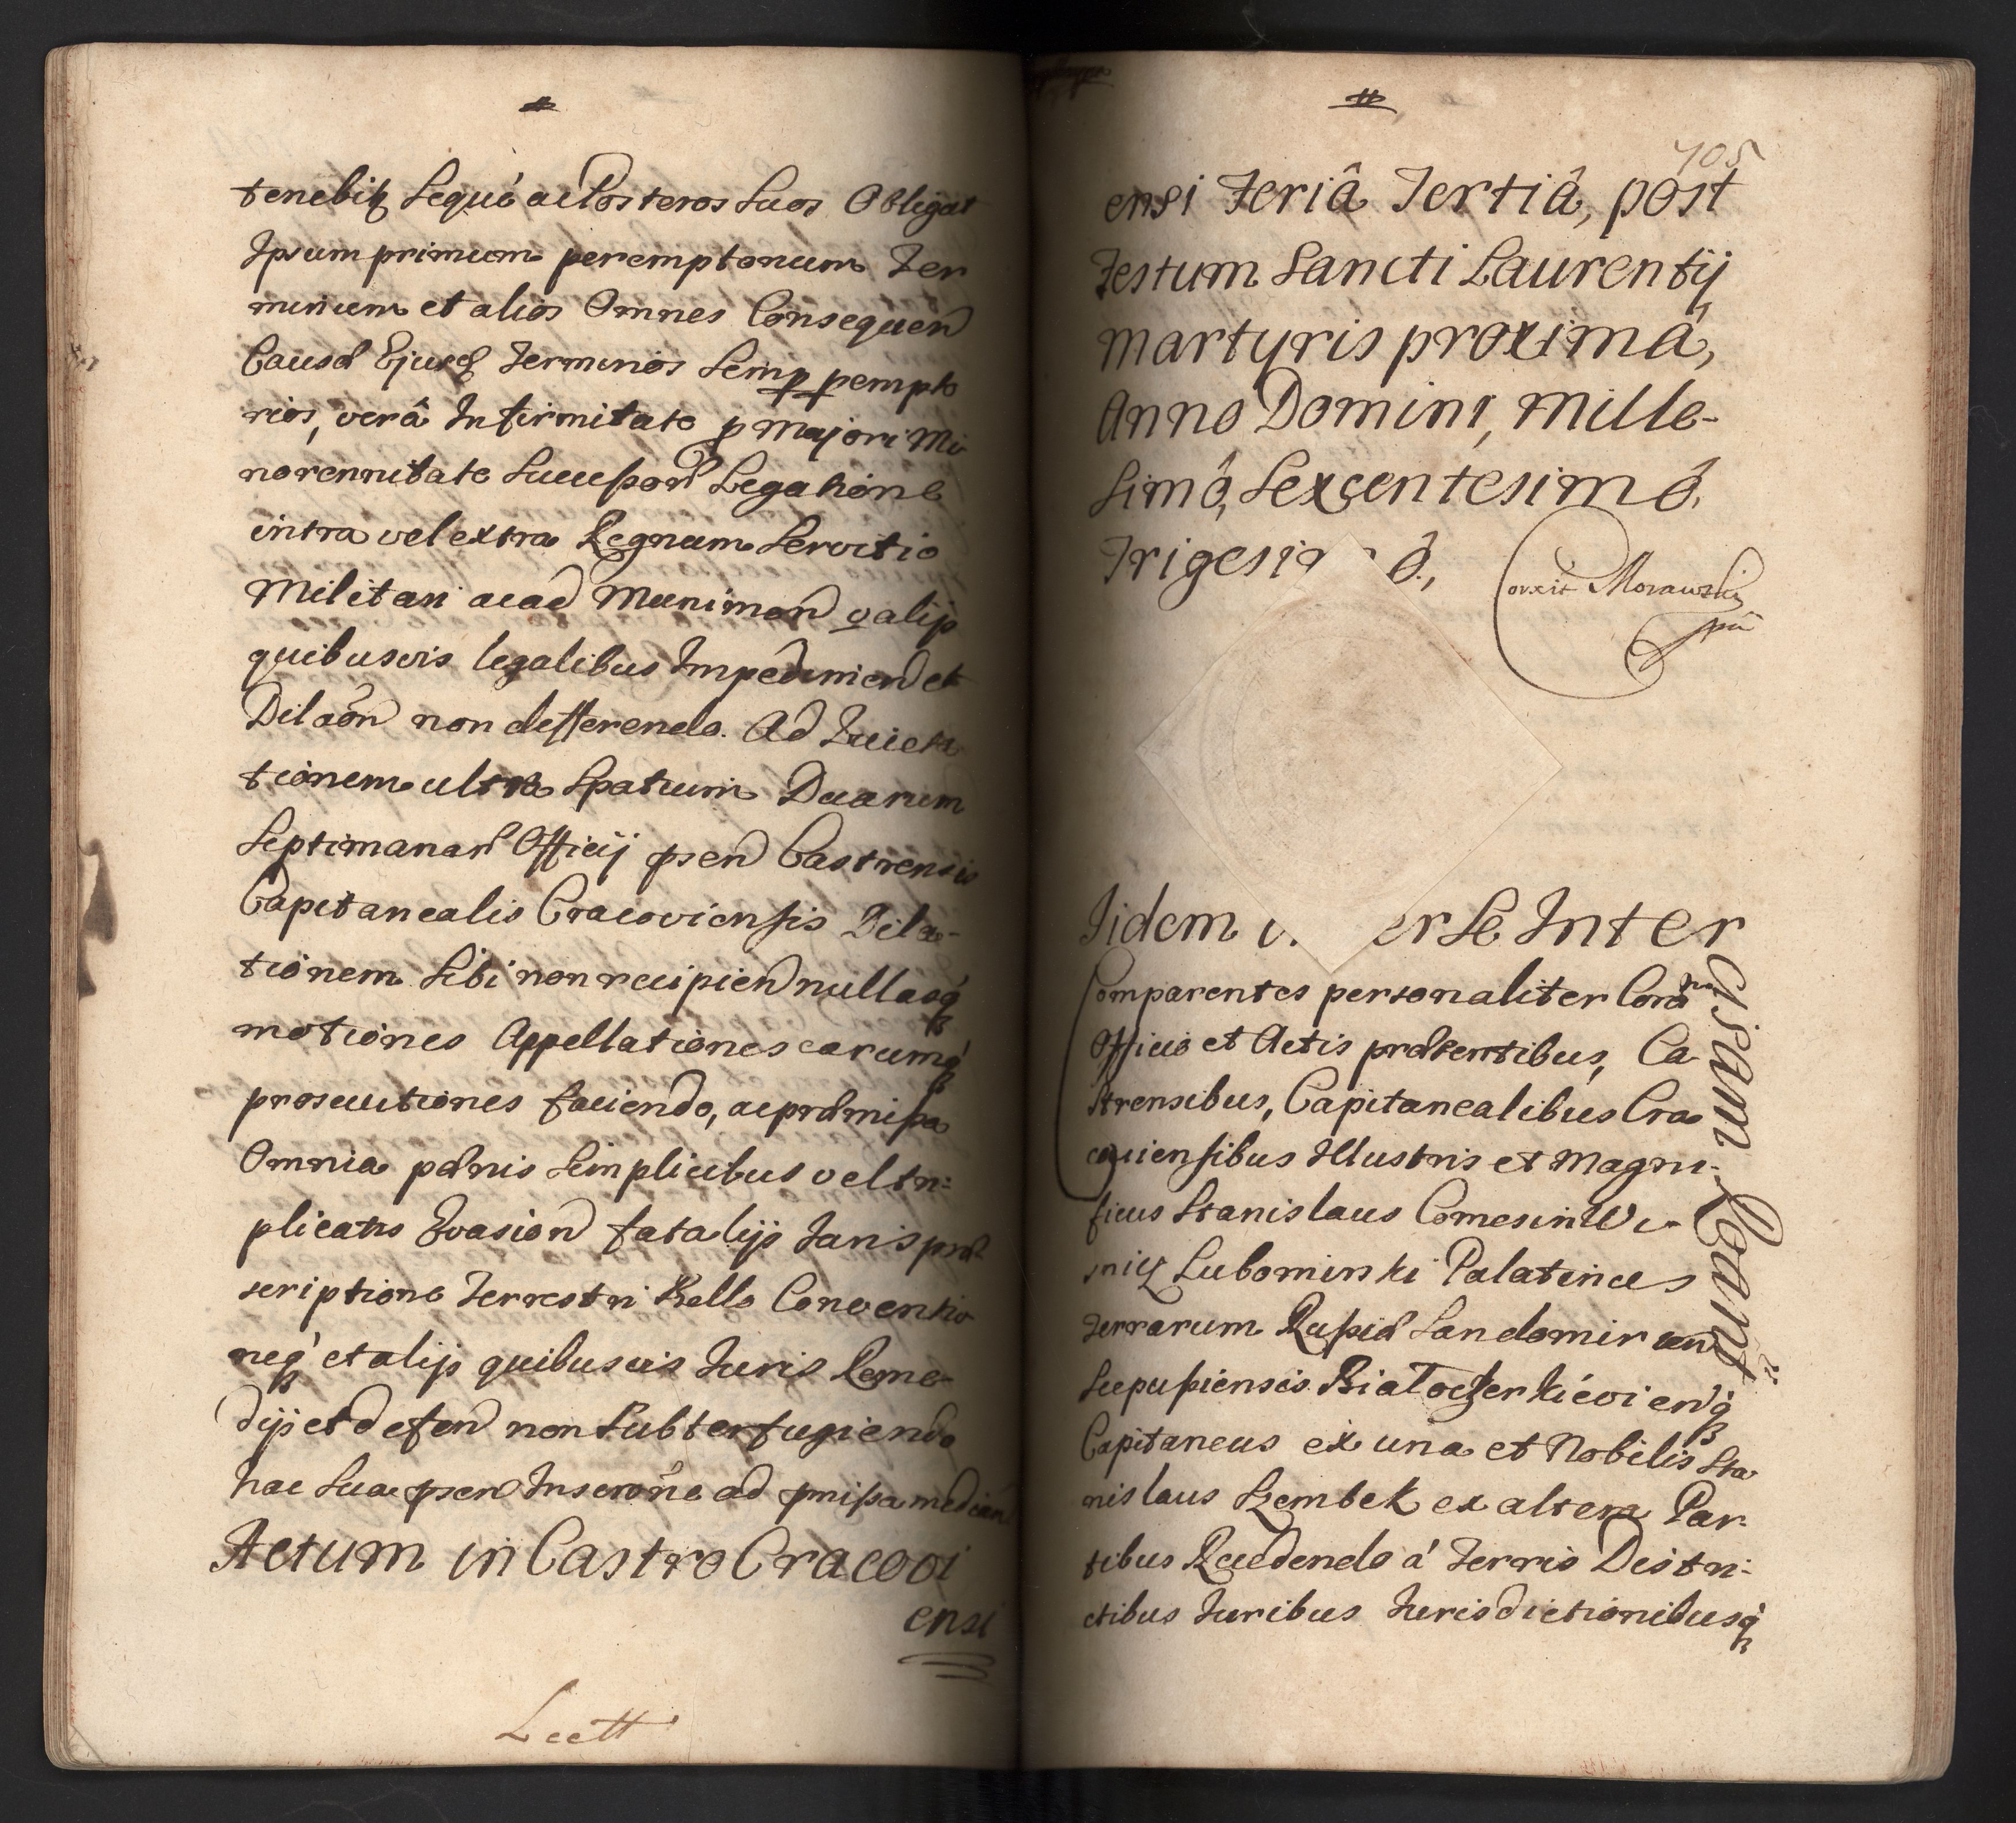 tenebitz Sequé ac Posteros Suos Obligat
Ipsum primum peremptorium Ter
minum et alios Omnes Consequen
Causæ Ejusd Terminos Semp pempto
rios, verâ Infirmitate p Majori Mi
norennitate Successor Legatione
intra vel extra Regnum Servitio
Militari ac ad Munimen valijs
quibusvis legalibus Impedimen et
Dilaón non differendo. Ad Iuicta
tionem ultra Spatium Duarum
Septimanar Officij psen Castrensis
Capitanealis Cracoviensis Dila-
tionem Sibi non recipien nullasq́
motiones Appellationes earumq́
prosecutiones faciendo, ac præmissa
Omnia pænis Simplicibus vel tri-
plicatis Evasion fatalijs Iuris præ
scriptione Terrestri Bello Conventio
neq́ et alijs quibusvis Iuris Reme-
dijs et defen non Subterfugiendo
hac Sua psen Inscróne ad pmissa median
Actum in Castro Cracovi
ensi
Lectt
705
ensi Feriâ Tertiâ, post
Festum Sancti Laurentij
Martyris proximâ,
Anno Domini, Mille-
Simô, Sexcentesimô,
Trigesi ô,
Corexit Morawski
mp
Iidem erse Inter
Cisiam Leant
Comparentes personaliter Corã
Officio et Actis præsentibus, Ca
strensibus, Capitanealibus Cra
coviensibus Illustris et Magni-
ficus Stanislaus Comes in Wi-
snicz Lubomirski Palatinus
Terrarum Russiæ Sandomirien
Scepusiensis Białocerkievienq́
Capitaneus ex una et Nobilis Sta
nislaus Szembek ex altera Par-
tibus Recedendo á Terris Distri-
ctibus Iuribus Iurisdictionibusq́